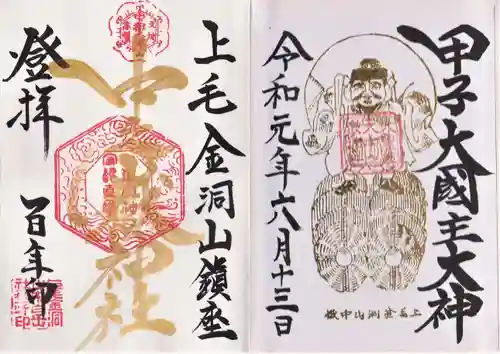 上毛金洞山鎮座
中之嶽神社
登拝
百年印
甲子大國主大神
令和元年六月十三日
上毛金洞山中嶽